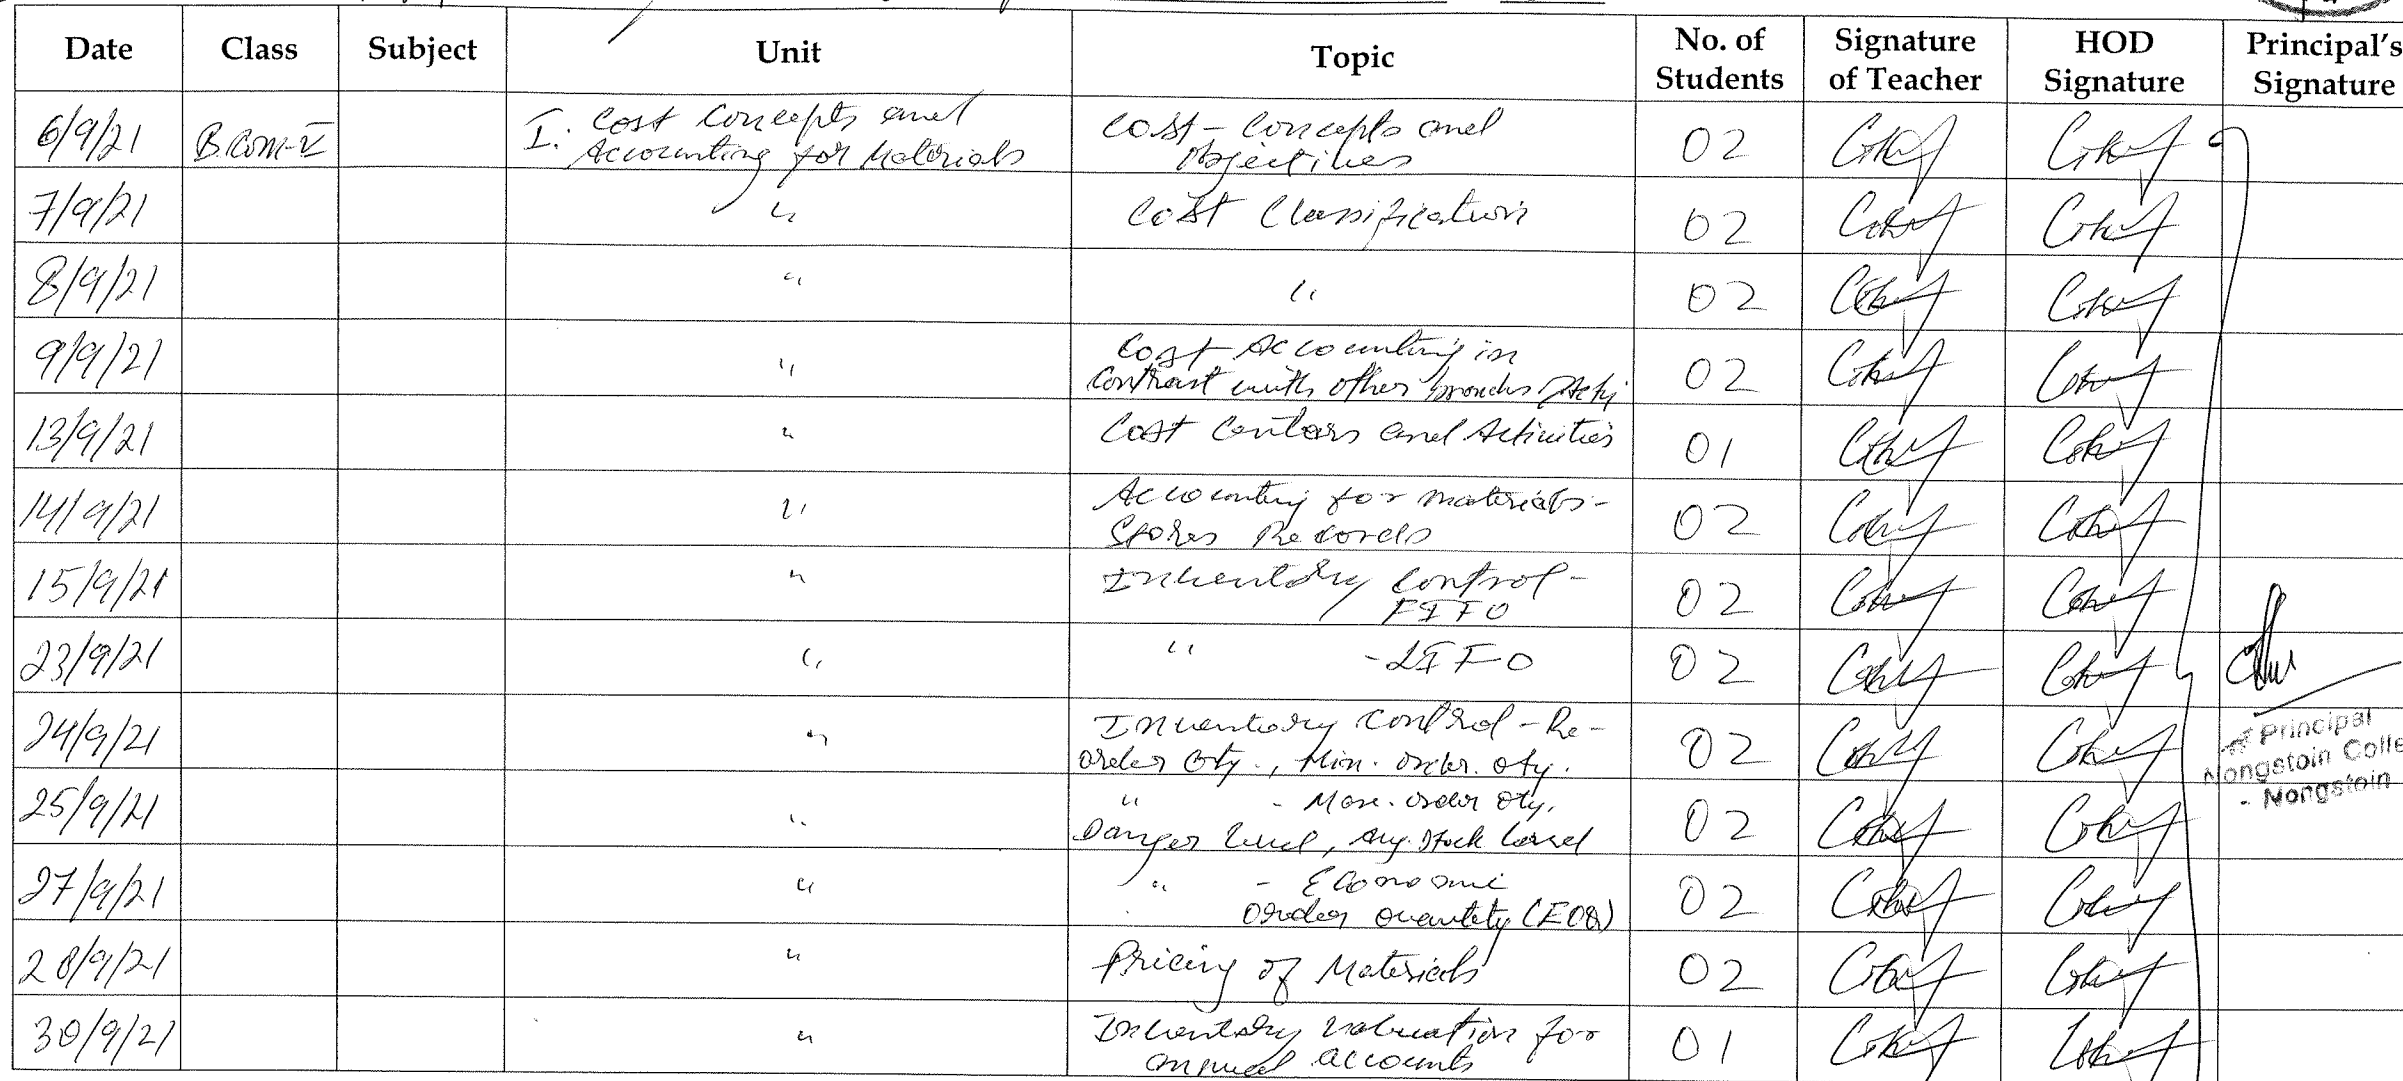 Date Class Subject Unit Topic No. of Students Signature of Teacher HOD Signature Principal's Signature
6/9/21 B.Com-V I. Cost Concepts and Accounting for Materials Cost-Concepts and Objectives 02
7/9/21 " Cost Classification 02
8/9/21 " " 02
9/9/21 " Cost Accounting in Contrast with other 02
13/9/21 " Cost Centars and Activities 01
14/9/21 " Accounting for materials- Stores Records 02
15/9/21 " Inventory Control- FIFO 02
23/9/21 " " -LIFO 02
24/9/21 " Inventory Control - Re- order Qty., Min. order. Qty. 02
25/9/21 " " - Max. order Qty. Danger level, Avg. Stock level 02
27/9/21 " " - Economic Order Quantity (EOQ) 02
28/9/21 " Pricing of Materials 02
30/9/21 " Inventory valuation for annual accounts 01
Principal
Nongstoin Colle
- Nongstoin